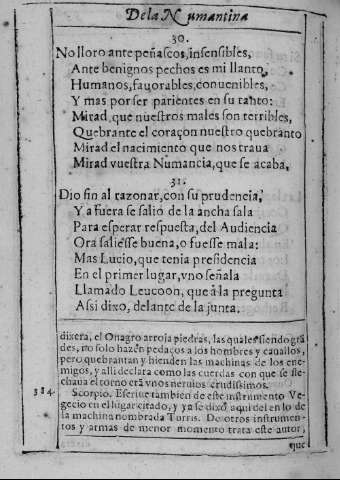 De la Numantina
30.
No lloro ante peñascos, insensibles,
Ante benignos pechos es mi llanto,
Humanos, fauorables, conuenibles,
Y mas por ser parientes en su tanto:
Mirad, que nuestros males son terribles,
Quebrante el coraçon nuestro quebranto
Mirad el nacimiento que nos traua
Mirad vuestra Numancia, que se acaba,
31.
Dio fin al razonar, con su prudencia,
Y a fuera se salio de la ancha sala
Para esperar respuesta, del Audiencia
Ora saliesse buena, o fuesse mala:
Mas Lucio, que tenia presidencia
En el primer lugar, vno señala
Llamado Leucoon, que à la pregunta
Assi dixo, delante de la junta.
dixera, el Onagro arroja piedras, las quales siendo grã
des, no solo hazen pedaços a los hombres y cauallos,
pero quebrantan y hienden las machinas de los ene-
migos, y alli declara como las cuerdas con que se fle-
chaua el torno erã vnos neruios crudissimos.
384 Scorpio. Escriue tambien de este instrumento Ve-
gecio en el lugar citado, y ya se dixo, aqui del en lo de
la machina nombrada Turris. De otros instrumen-
tos y armas de menor momento trata este autor,
que